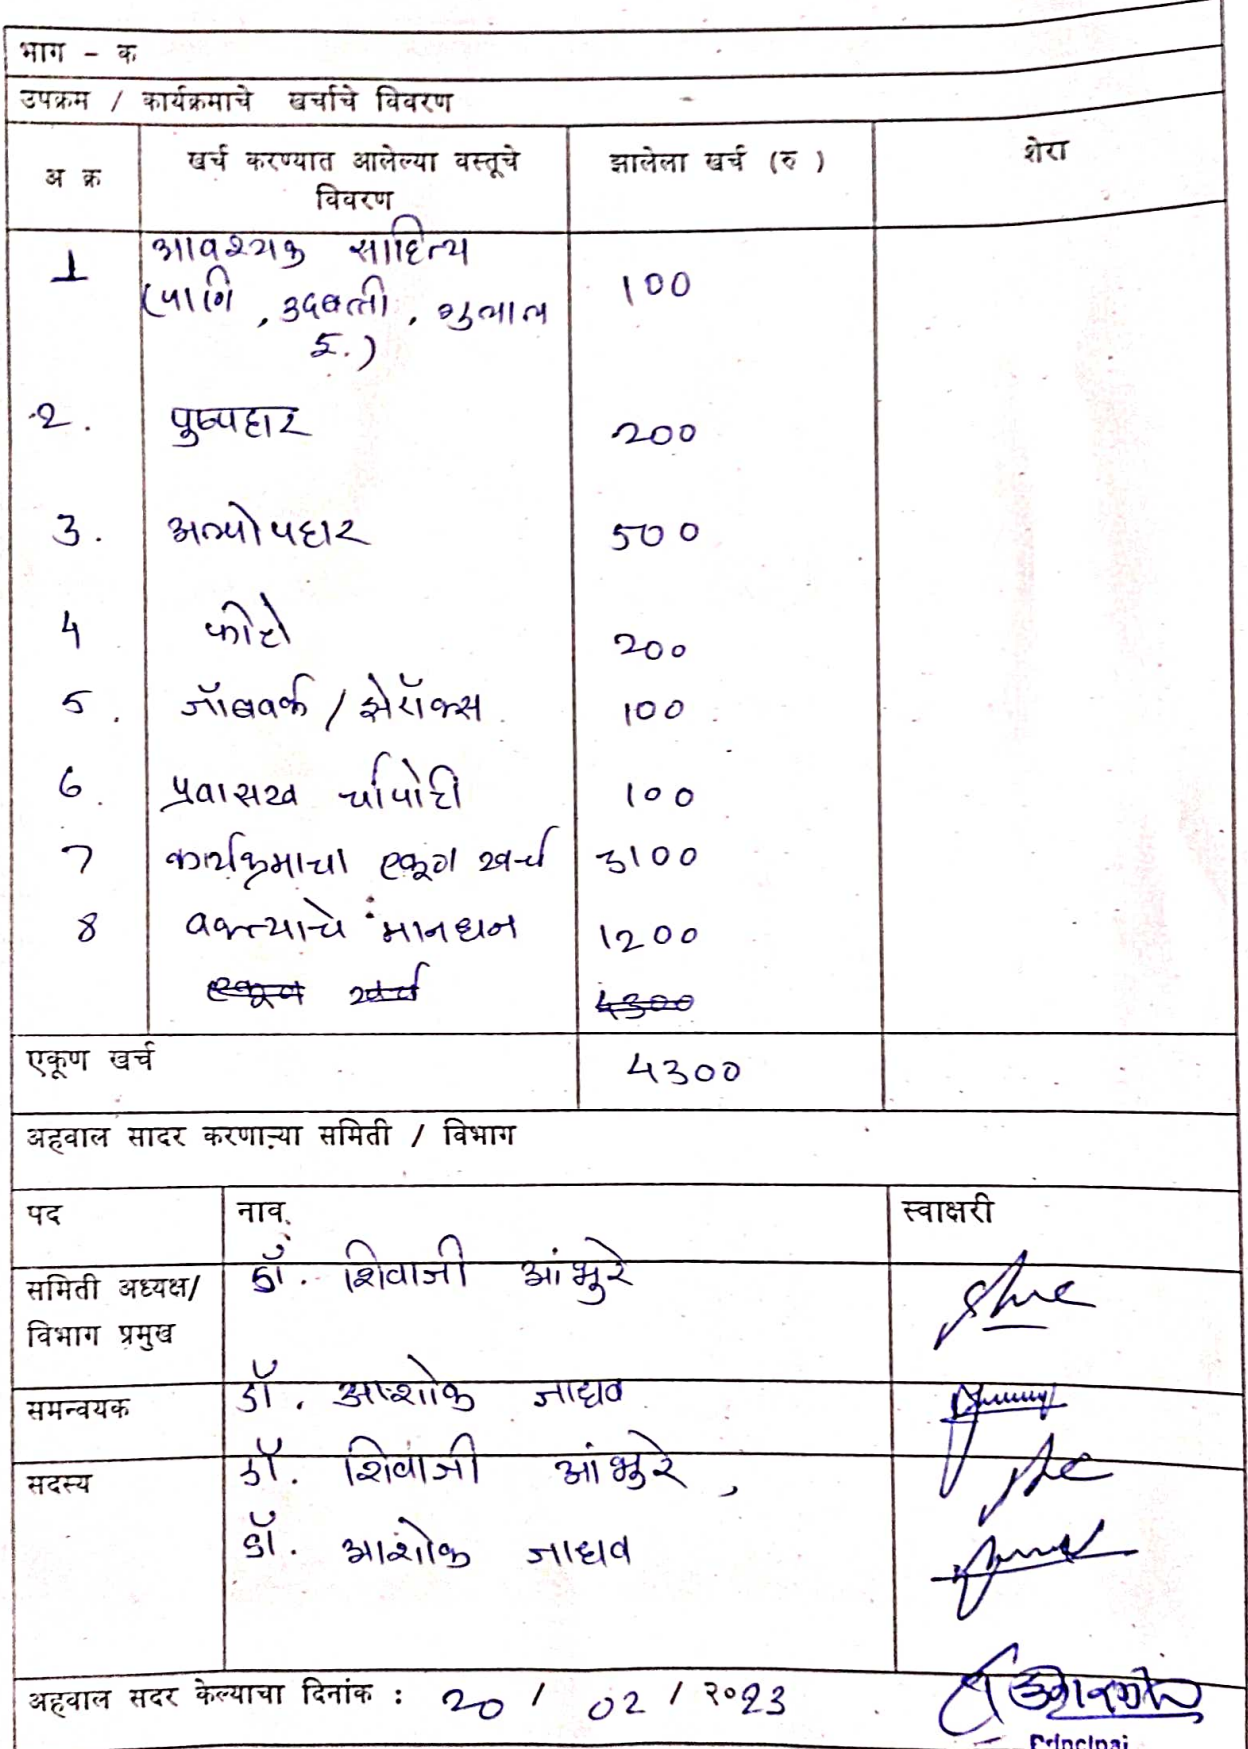 भाग - क
उपक्रम / कार्यक्रमाचे खर्चाचे विवरण
अ क्र
खर्च करण्यात आलेल्या वस्तूचे
विवरण
झालेला खर्च (रु )
शेरा
1 आवश्यक साहित्य 100
, उदबत्ती , गुलाल
इ.)
2. पुष्पहार 200
3. अल्पोपहार 500
4 फोटो 200
5. जॉबवर्क / झेरॉक्स 100
6. 100
7 कार्यक्रमाचा एकूण खर्च 3100
8 वक्त्याचे मानधन 1200
एकूण खर्च 4300
एकूण खर्च 4300
अहवाल सादर करणाऱ्या समिती / विभाग
पद नाव स्वाक्षरी
समिती अध्यक्ष/ डॉ. शिवाजी आंभुरे
विभाग प्रमुख
समन्वयक डॉ. अशोक जाधव
सदस्य डॉ. शिवाजी आंभुरे,
डॉ. अशोक जाधव
अहवाल सदर केल्याचा दिनांक : 20 / 02 / २०23
Principal